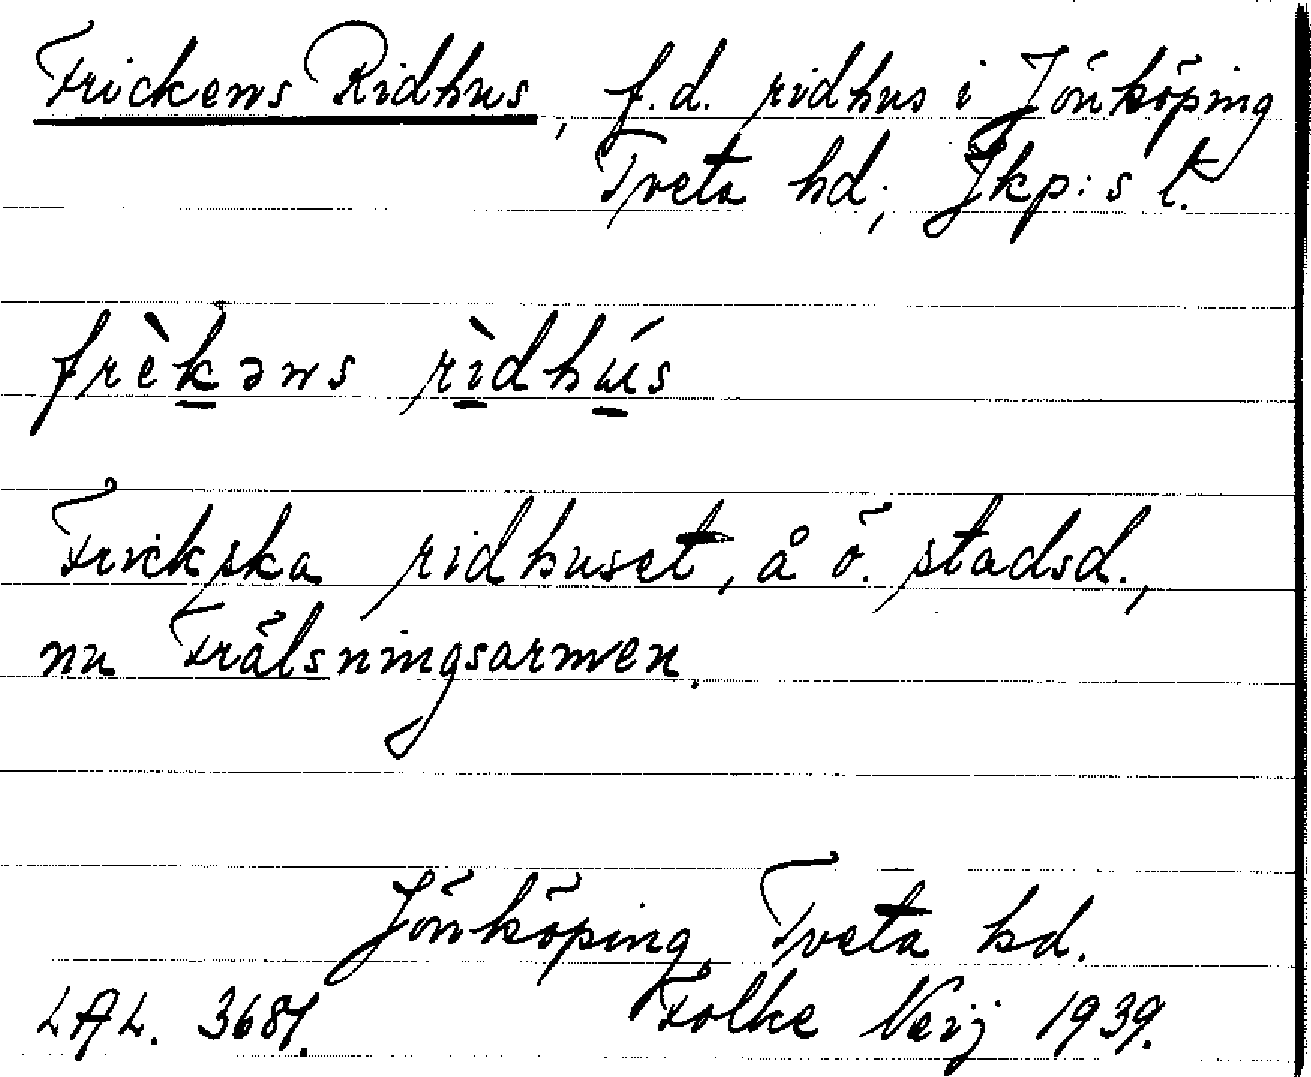 Frickens Ridhus, f.d. ridhus i Jönköping
Tveta hd, Jkp:s l.
frèkəns rìdhús
Frickska ridhuset, å ö. stadsd.,
nu Frälsningsarmen.
Jönköping, Tveta hd.
LAL. 3687. Folke Neij 1939.